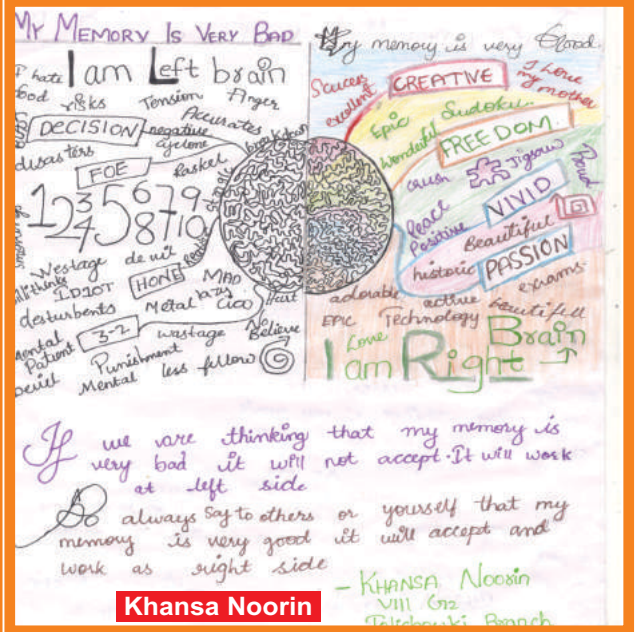 MY MEMORY IS VERY BAD
I am Left brain
I hate
food
risks
Tension
Anger
DECISION
negative
Accurates
cyclone
breakdown
disasters
FOE
Raskel
1 2 3 4 5 6 7 8 9 10
Westage
de vil
IDIOT
HONE
MAD
lazy
disturbents
Metal
Hurt
3-2
wastage
No
Believe
Mental
Patient
Punishment
less fellow
devil
Mental
My memory is very Good
Scucess
excellent
CREATIVE
I Love
my mother
Epic
Sudoku
Wonderful
FREEDOM.
crush
Jigsaw
Proud
VIVID
Peace
Positive
Beautiful
historic
PASSION
exrams
adorable
active
beautifull
EPIC
Technology
Love
Brain
I am Right
If we are thinking that my memory is
very bad it will not accept. It will work
at left side
So always say to others or yourself that my
memory is very good it will accept and
work as right side
- KHANSA Noorin
VIII G12
Tolichowki Branch
Khansa Noorin